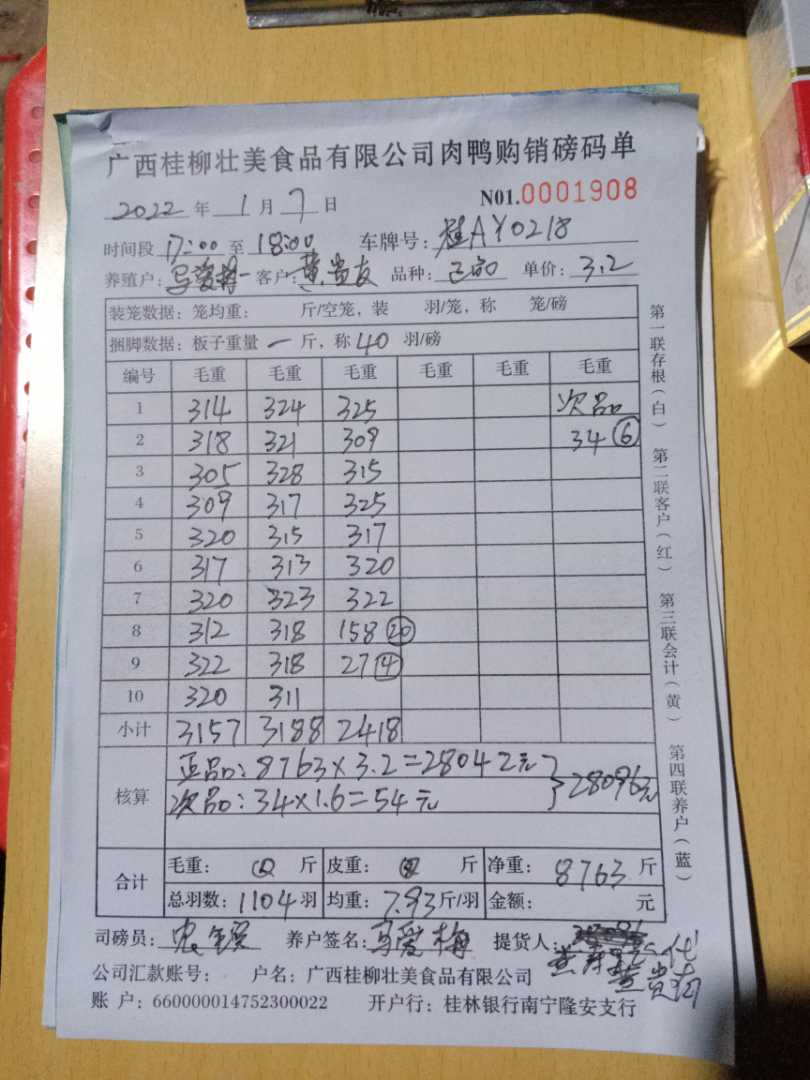 广西桂柳壮美食品有限公司肉鸭购销磅码单
2022 年 1 月 7 日 N01.0001908
时间段 17:00 至 18:00 车牌号: 桂AY0218
养殖户: 马爱梅 客户: 黄贵友 品种: 正品 单价: 3.2
装笼数据: 笼均重: 斤/空笼, 装 羽/笼, 称 笼/磅
捆脚数据: 板子重量 一 斤, 称 40 羽/磅
编号 毛重 毛重 毛重 毛重 毛重 毛重
1 314 324 325 次品
2 318 321 309 34 ⑥
3 305 328 315
4 309 317 325
5 320 315 317
6 317 313 320
7 320 323 322
8 312 318 158 ⑳
9 322 318 27 ④
10 320 311
小计 3157 3188 2418
核算 正品: 8763×3.2=28042元 } 28096元
次品: 34×1.6=54元
合计 毛重: 斤 皮重: 斤 净重: 8763 斤
总羽数: 1104 羽 均重: 7.93 斤/羽 金额: 元
司磅员: 养户签名: 马爱梅 提货人: 代
公司汇款账号: 户名: 广西桂柳壮美食品有限公司
账 户: 660000014752300022 开户行: 桂林银行南宁隆安支行
第一联存根(白) 第二联客户(红) 第三联会计(黄) 第四联养户(蓝)